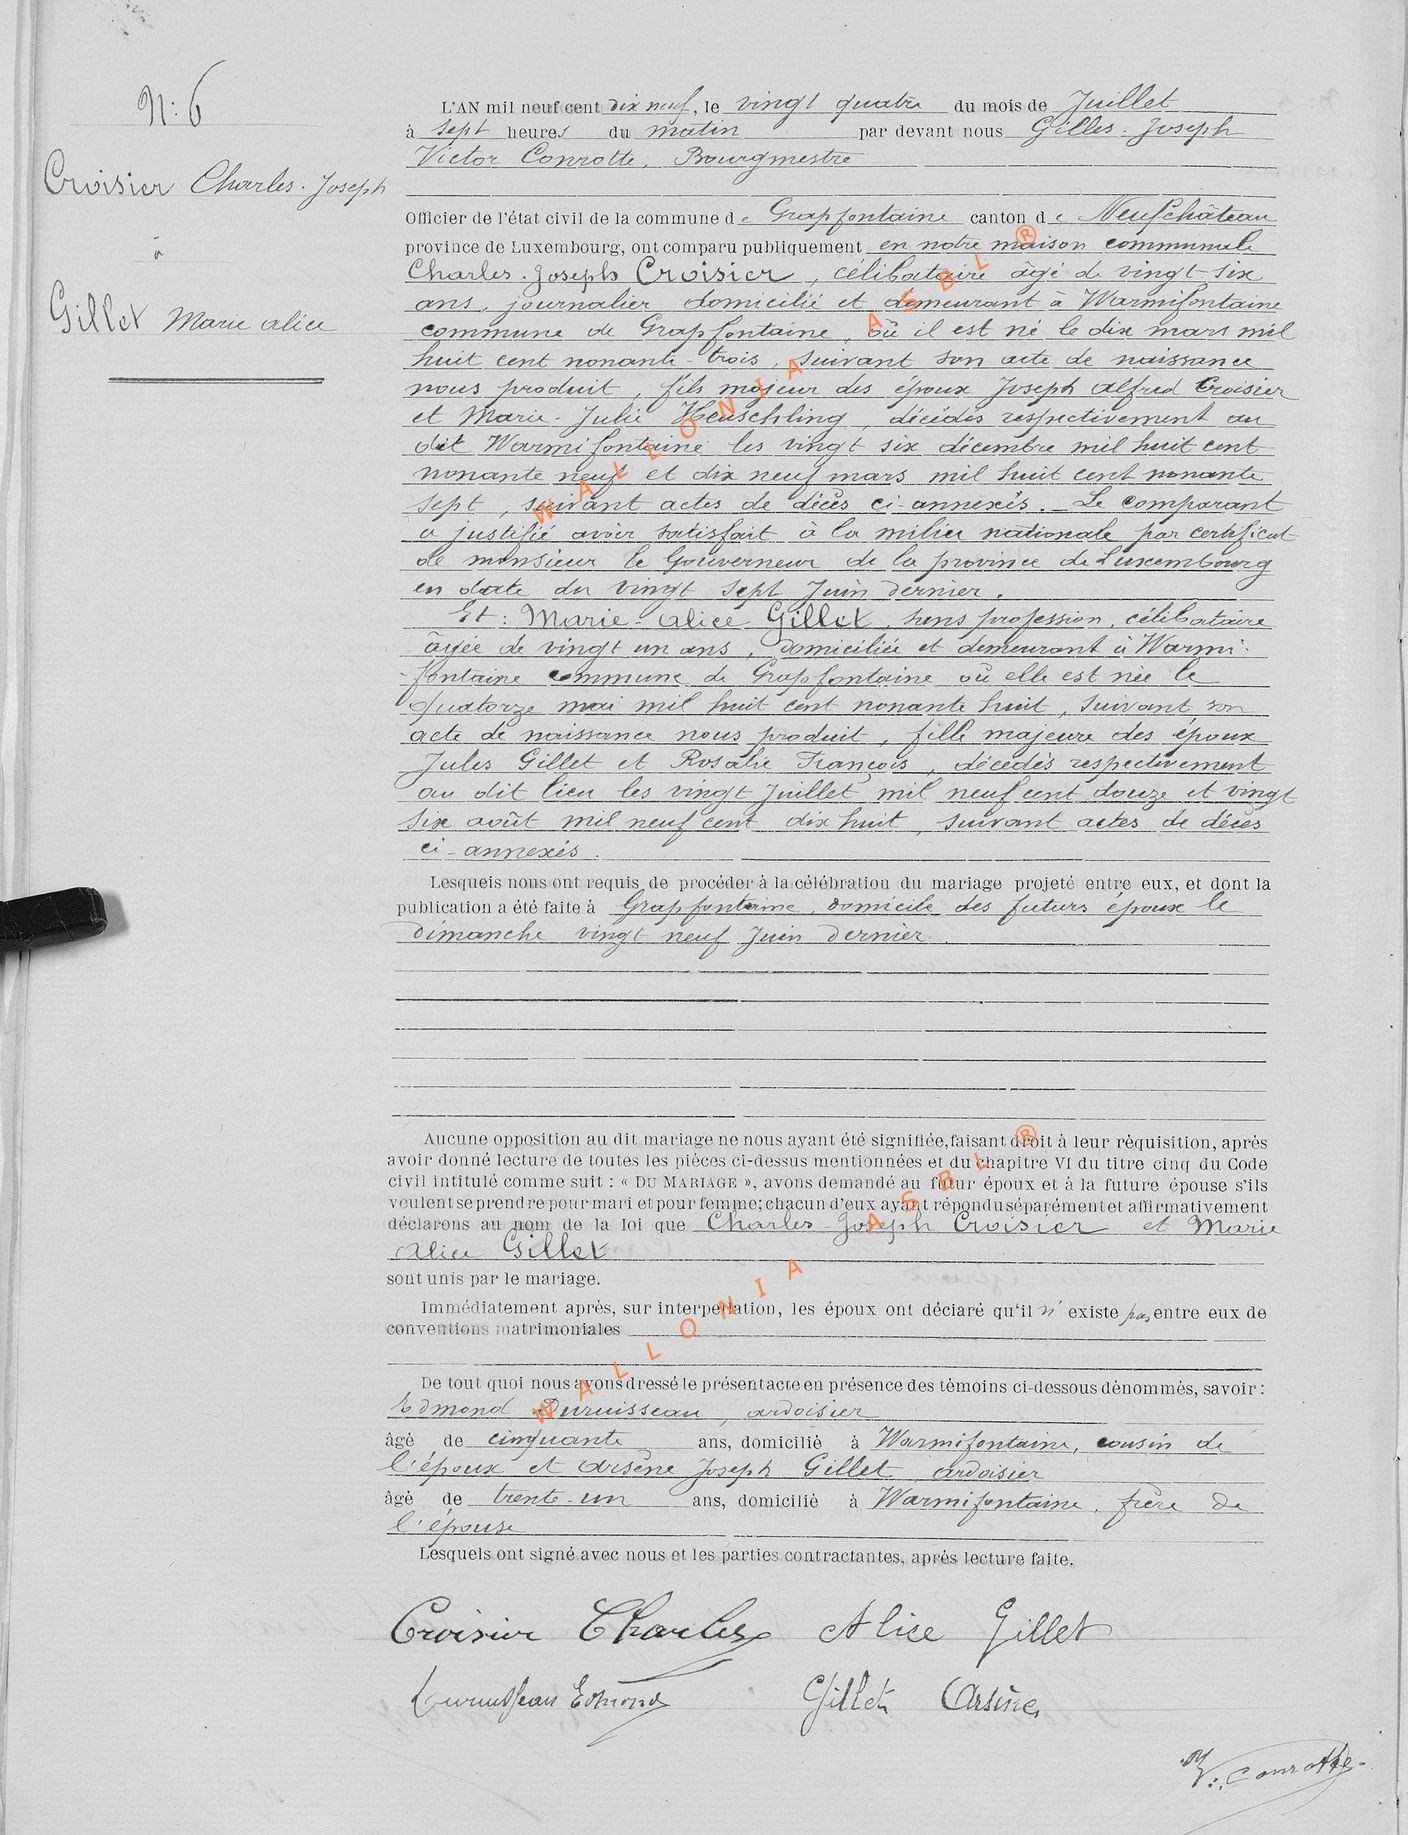 N: 6
Croisier Charles-Joseph
à
Gillet Marie alice
L'AN mil neuf cent dix neuf, le vingt quatre du mois de Juillet
à sept heures du matin par devant nous Gilles-Joseph
Victor Conrotte, Bourgmestre
Officier de l'état civil de la commune de Grapfontaine canton de Neufchâteau
province de Luxembourg, ont comparu publiquement en notre maison communale
Charles-Joseph Croisier, célibataire âgé de vingt-six
ans, journalier domicilié et demeurant à Warmifontaine
commune de Grapfontaine, où il est né le dix mars mil
huit cent nonante-trois, suivant son acte de naissance
nous produit, fils majeur des époux Joseph alfred Croisier
et Marie-Julie Heuschling, décédés respectivement au
dit Warmifontaine les vingt six décembre mil huit cent
nonante neuf et dix neuf mars mil huit cent nonante
sept, suivant actes de décès ci-annexés. Le comparant
a justifié avoir satisfait à la milice nationale par certificat
de monsieur le Gouverneur de la province de Luxembourg
en date du vingt sept Juin dernier.
Et: Marie-alice Gillet, sans profession, célibataire
âgée de vingt un ans, domiciliée et demeurant à Warmi-
-fontaine commune de Grapfontaine où elle est née le
quatorze mai mil huit cent nonante huit, suivant son
acte de naissance nous produit, fille majeure des époux
Jules Gillet et Rosalie François, décédés respectivement
au dit lieu les vingt Juillet mil neuf cent douze et vingt
six août mil neuf cent dix huit, suivant actes de décès
ci-annexés.
Lesquels nous ont requis de procéder à la célébration du mariage projeté entre eux, et dont la
publication a été faite à Grapfontaine, domicile des futurs époux le
dimanche vingt neuf Juin dernier.
Aucune opposition au dit mariage ne nous ayant été signifiée, faisant droit à leur réquisition, après
avoir donné lecture de toutes les pièces ci-dessus mentionnées et du chapitre VI du titre cinq du Code
civil intitulé comme suit : « DU MARIAGE », avons demandé au futur époux et à la future épouse s'ils
veulent se prendre pour mari et pour femme; chacun d'eux ayant répondu séparément et affirmativement
déclarons au nom de la loi que Charles-Joseph Croisier et Marie
alice Gillet
sont unis par le mariage.
Immédiatement après, sur interpellation, les époux ont déclaré qu'il n'existe pas entre eux de
conventions matrimoniales
De tout quoi nous avons dressé le présent acte en présence des témoins ci-dessous dénommés, savoir :
Edmond Duruisseau, ardoisier
âgé de cinquante ans, domicilié à Warmifontaine, cousin de
l'époux et arsène Joseph Gillet, ardoisier
âgé de trente-un ans, domicilié à Warmifontaine, frère de
l'épouse
Lesquels ont signé avec nous et les parties contractantes, après lecture faite.
Croisier Charles Alice Gillet
Duruisseau Edmond Gillet Arsène
V. Conrotte
WALLONIA ASBL ®
WALLONIA ASBL ®